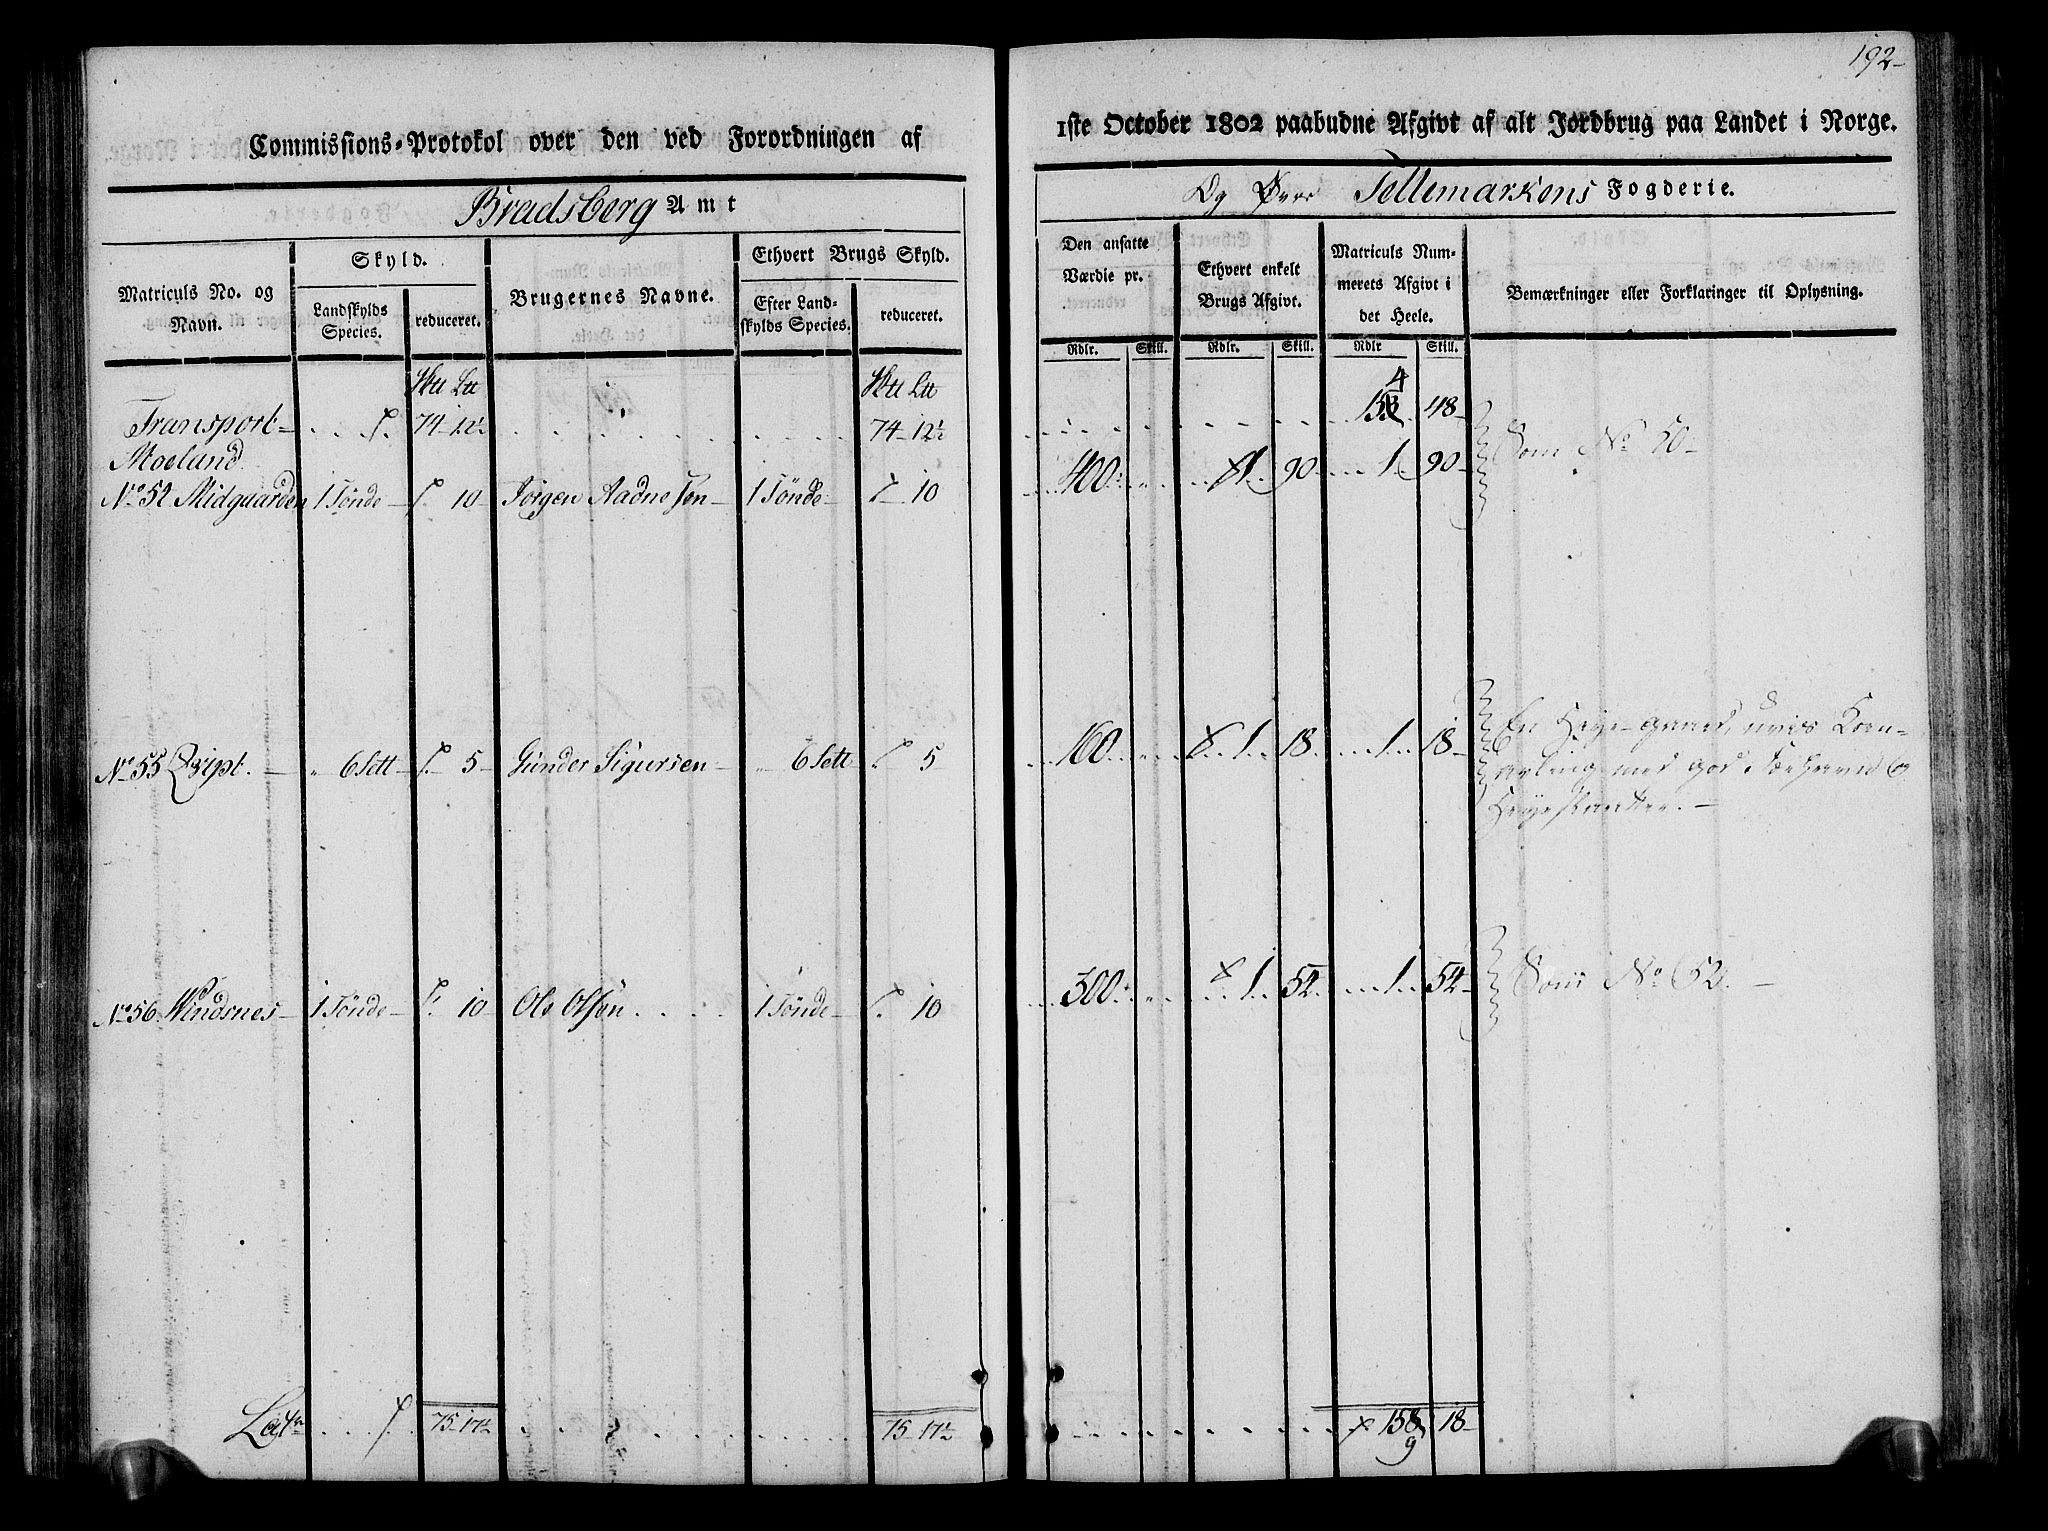 192-
Commissions-Protokol over den ved Forordningen af
1ste October 1802 paabudne Afgivt af alt Jordbrug paa Landet i Norge.
Bradsberg Amt
Og Øvre Tellemarkens Fogderie.
Matriculs No. og Navn.
Skyld.
Landskylds Species.
reduceret.
Brugernes Navne.
Ethvert Brugs Skyld.
Efter Landskylds Species.
reduceret.
Den ansatte Værdie pr.
Ethvert enkelt Brugs Afgivt.
Matriculs Nummerets Afgivt i det Heele.
Bemærkninger eller Forklaringer til Oplysning.
Rdlr. Skill. Rdlr. Skill. Rdlr Skill.
Transport 74-12½ 74-12½ 154 48-
Moeland
No 52 Midgaarden 1 Tønde 10 Jørgen Aadnesøn 1 Tønde 10 400 1 90 1 90 Som No 50-
No 55 6 Sett 5 Gunder Sigursen 6 Sett 5 160 1 18 1 18 En Heye-gaard, uvis Korn-
avling med god og
No 56 Windsnes 1 Tønde 10 Ole Olsøn 1 Tønde 10 300 1 54 1 54 Som No 52.
75-17½ 75-17½ 158 18-
9